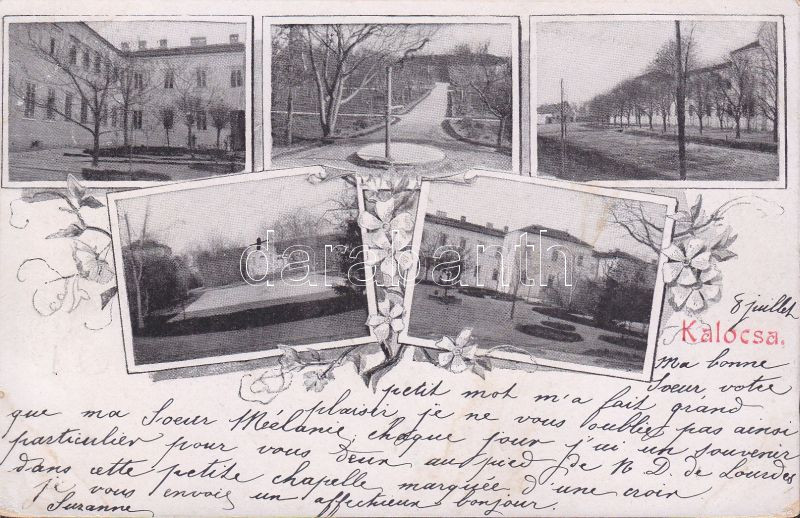 darabanth
8 juillet
Kalocsa.
Ma bonne
Soeur votre
petit mot m'a fait grand
plaisir, je ne vous oublie pas ainsi
que ma Soeur Mélanie, chaque jour j'ai un souvenir
particulier pour vous deux au pied de N. D. de Lourdes
dans cette petite chapelle marquée d'une croix.
je vous envoie un affectueux bonjour.
Suzanne